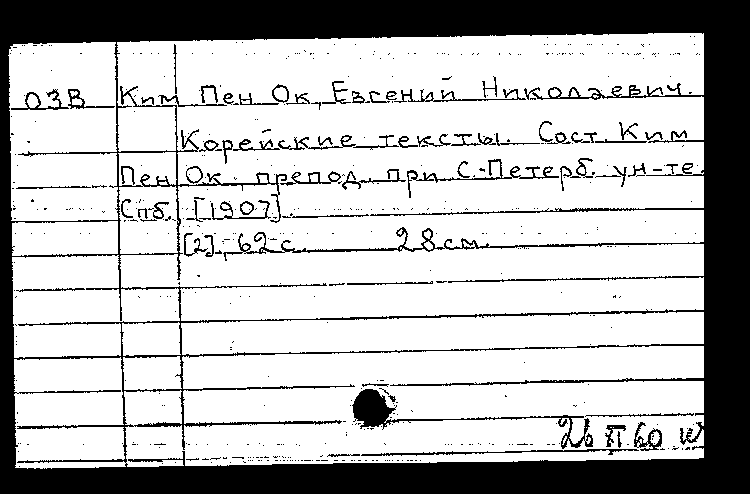 ОЗВ Ким Пен Ок, Евгений Николаевич.
Корейские тексты. Сост. Ким
Пен Ок, препод. при С-Петерб. ун-те.
Спб., [1907].
[2], 62 с. 28 см.
26 XI 60